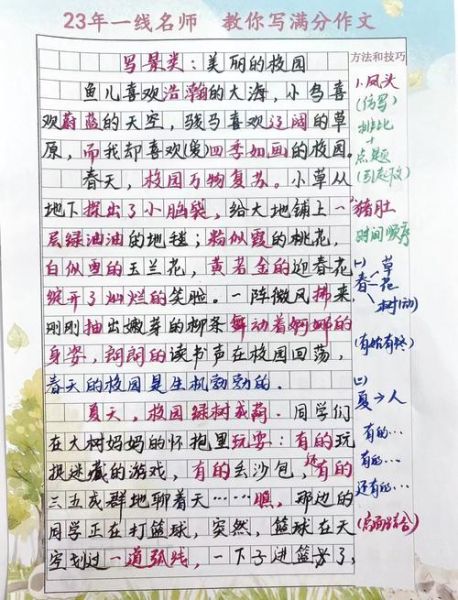 23年一线名师 教你写满分作文
写景类：美丽的校园
方法和技巧
鱼儿喜欢浩瀚的大海，小鸟喜
欢蔚蓝的天空，骏马喜欢辽阔的草
原，而我却喜欢(爱)四季如画的校园。
春天，校园万物复苏。小草从
地下探出了小脑袋，给大地铺上一
层绿油油的地毯；粉似霞的桃花，
白似雪的玉兰花，黄若金的迎春花
绽开了灿烂的笑脸。一阵微风拂来，
刚刚抽出嫩芽的柳条舞动着婀娜的
身姿，朗朗的读书声在校园回荡，
春天的校园是生机勃勃的．
夏天，校园绿树成荫．同学们
在大树妈妈的怀抱里玩耍：有的玩
捉迷藏的游戏，有的丢沙包，还有的
三五成群地聊着天……瞧，那边的
同学正在打篮球，突然，篮球在天
空划过一道弧线，一下子进篮筐了，
1、凤头
(仿写)
排比
+
点题
(引起下文)
猪肚
时间顺序
(一)
春
草
花
树(动)
(有始有终)
(二)
夏→人
有的…
有的…
还有的…
(点面结合)